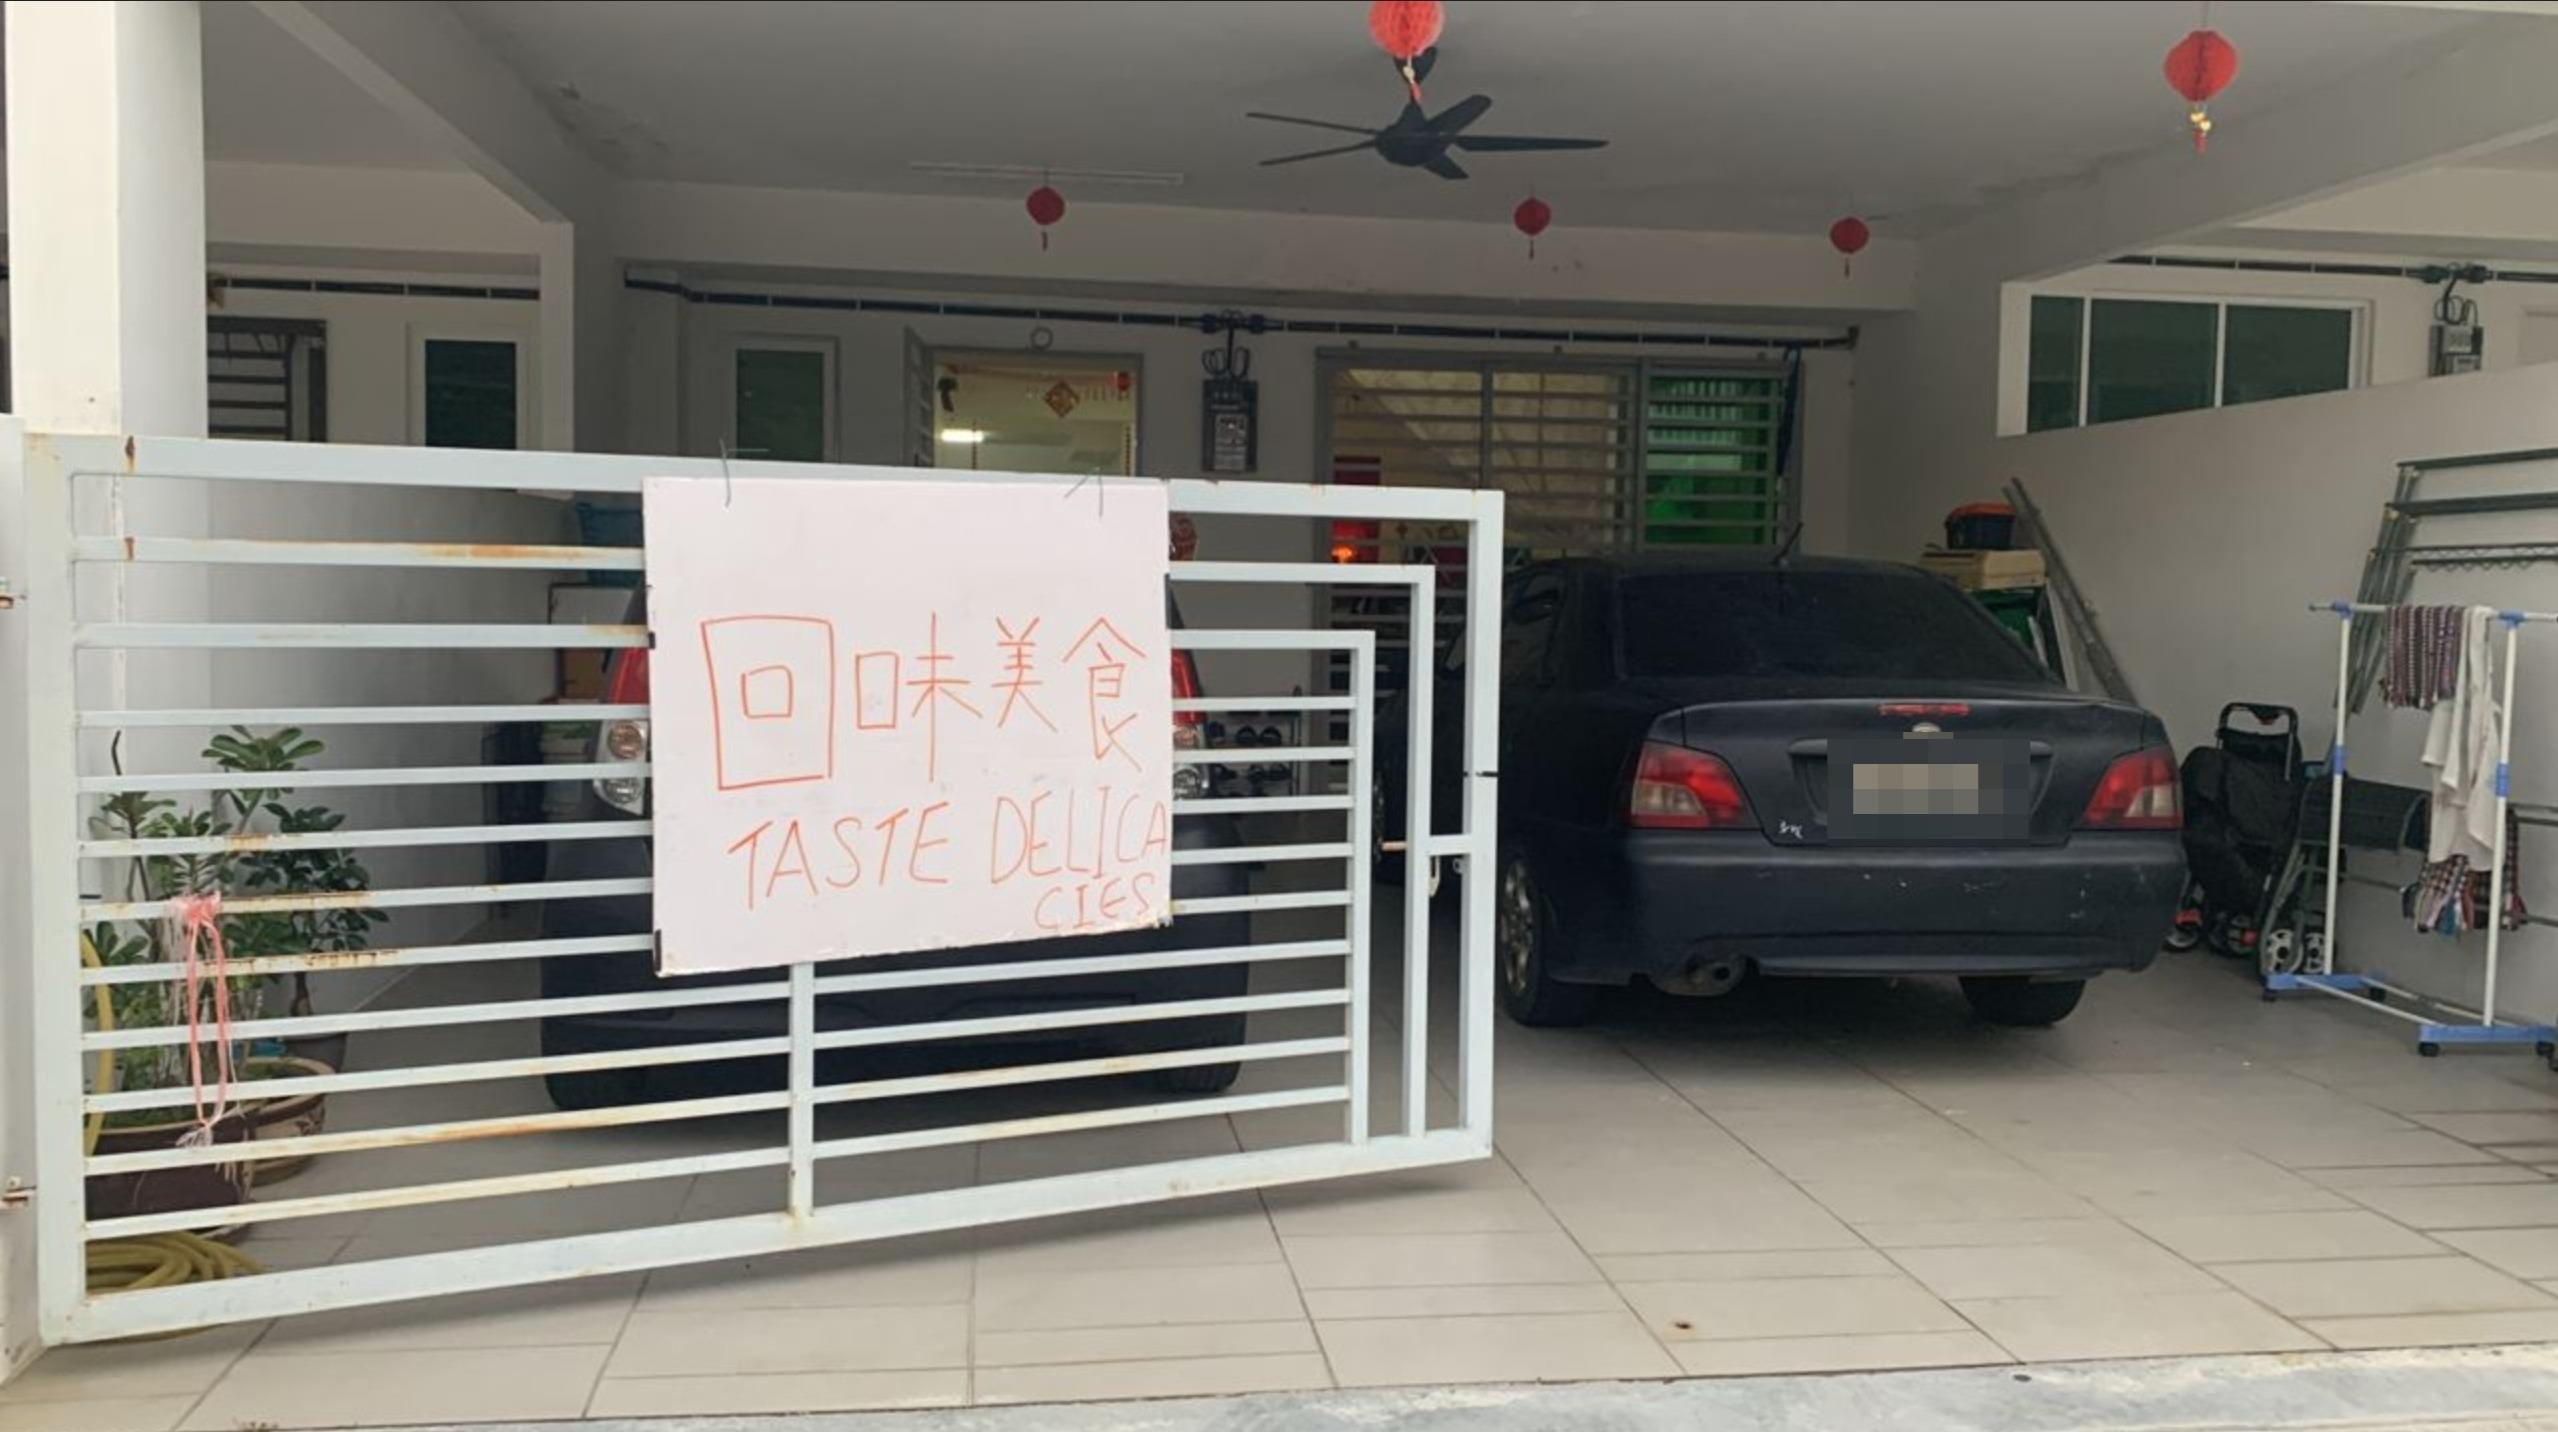 回味美食
TASTE DELICA
CIES